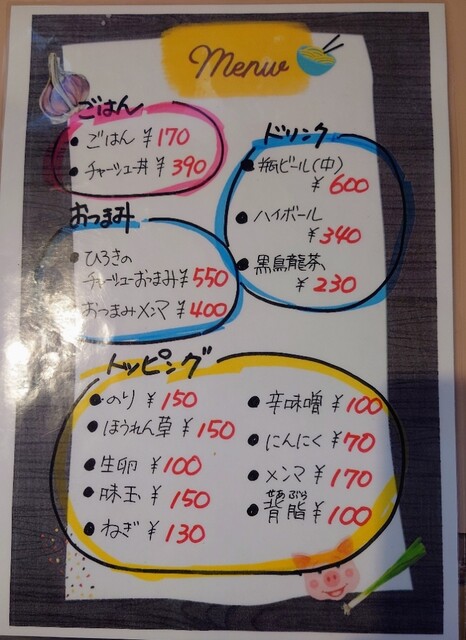 Menu
ごはん
ごはん ¥170
チャーシュー丼 ¥390
ドリンク
瓶ビール(中)
¥600
ハイボール
¥340
黒烏龍茶
¥230
おつまみ
ひろきの
チャーシューおつまみ¥550
おつまみメンマ¥400
トッピング
のり ¥150
ほうれん草 ¥150
生卵 ¥100
味玉 ¥150
ねぎ ¥130
辛味噌 ¥100
にんにく ¥70
メンマ ¥170
せあぶら
背脂 ¥100